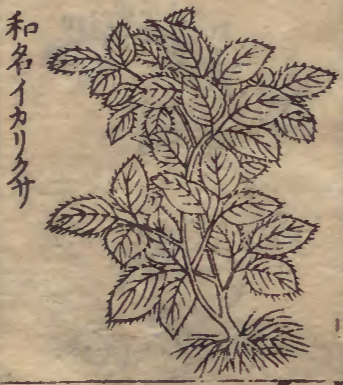 和名イカリクサ